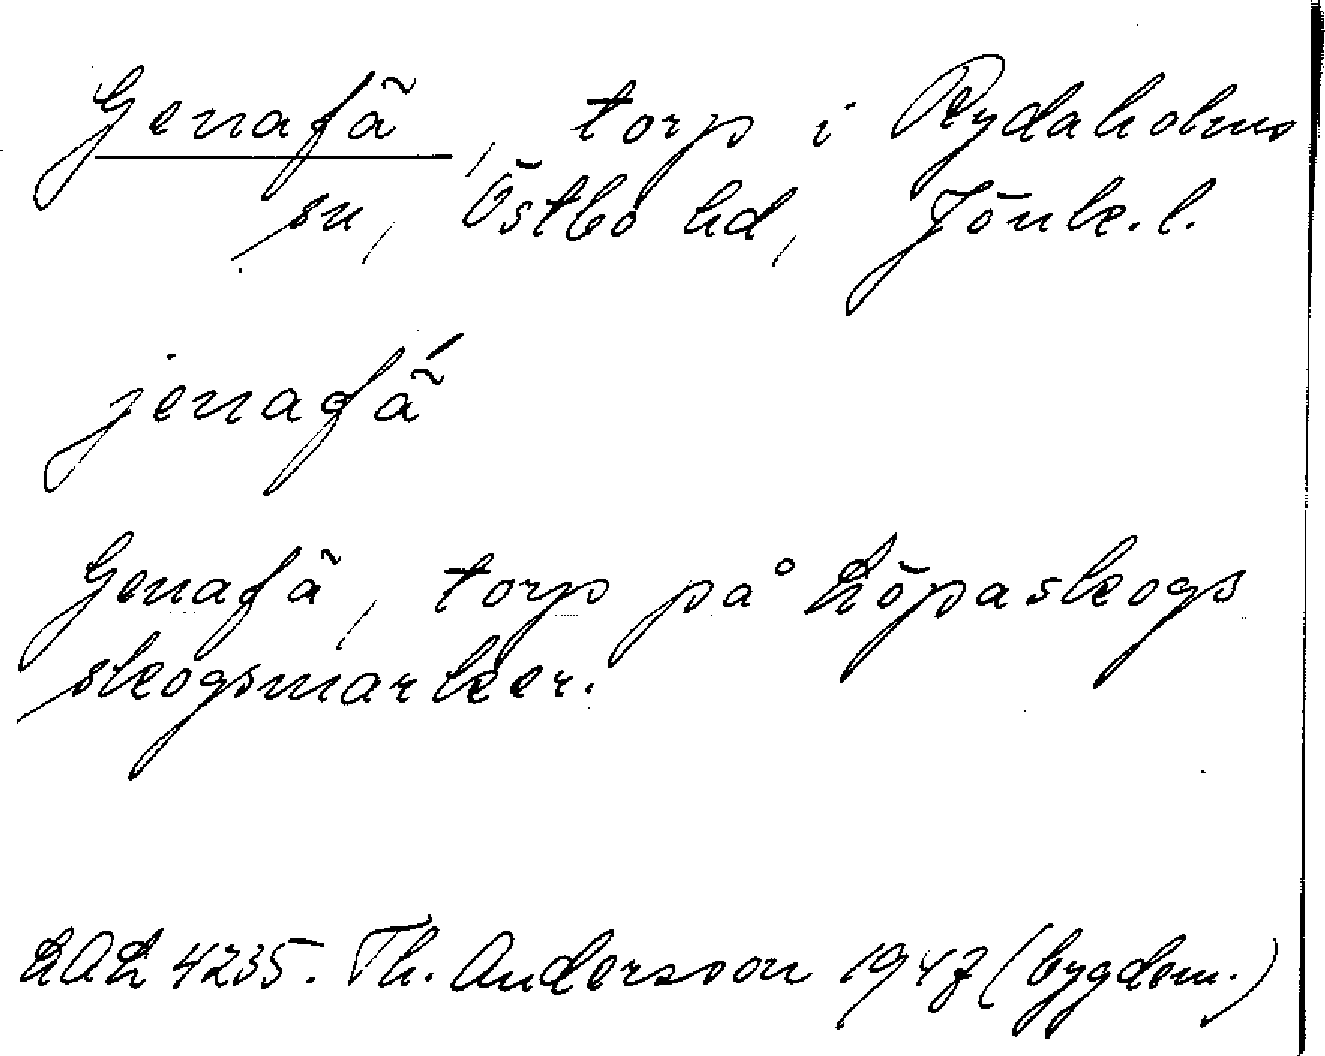 Genafä, torp i Rydaholms
sn, Östbo hd, Jönk. l.
jenafä́
Genafä, torp på Löpaskogs
skogsmarker.
LAL 4235. Th. Andersson 1947 (bygdem.)